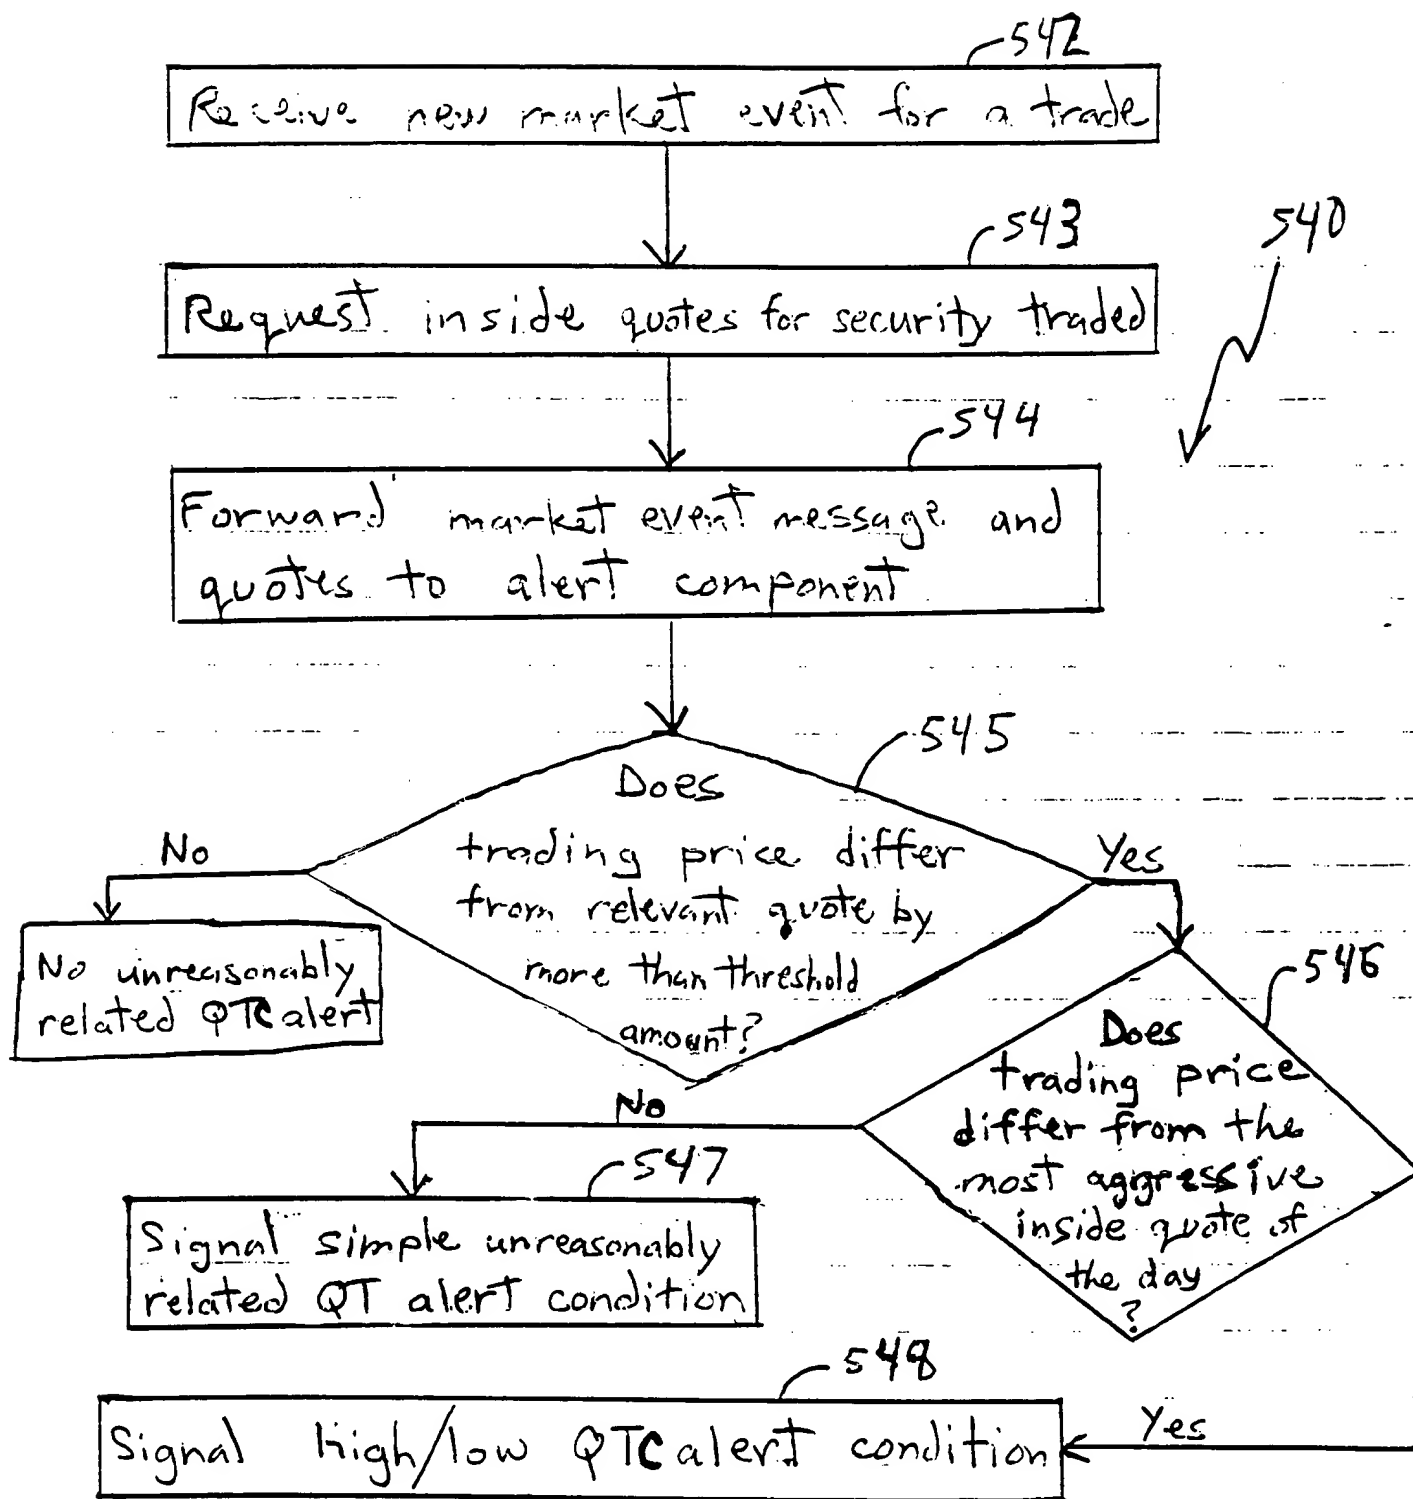 542
Receive new market event for a trade
543
540
Request inside quotes for security traded
544
Forward market event message and
quotes to alert component
545
Does
trading price differ
from relevant quote by
more than threshold
amount?
No
Yes
No unreasonably
related QTC alert
546
Does
trading price
differ from the
most aggressive
inside quote of
the day
?
No
547
Signal simple unreasonably
related QT alert condition
548
Signal High/low QTC alert condition
Yes